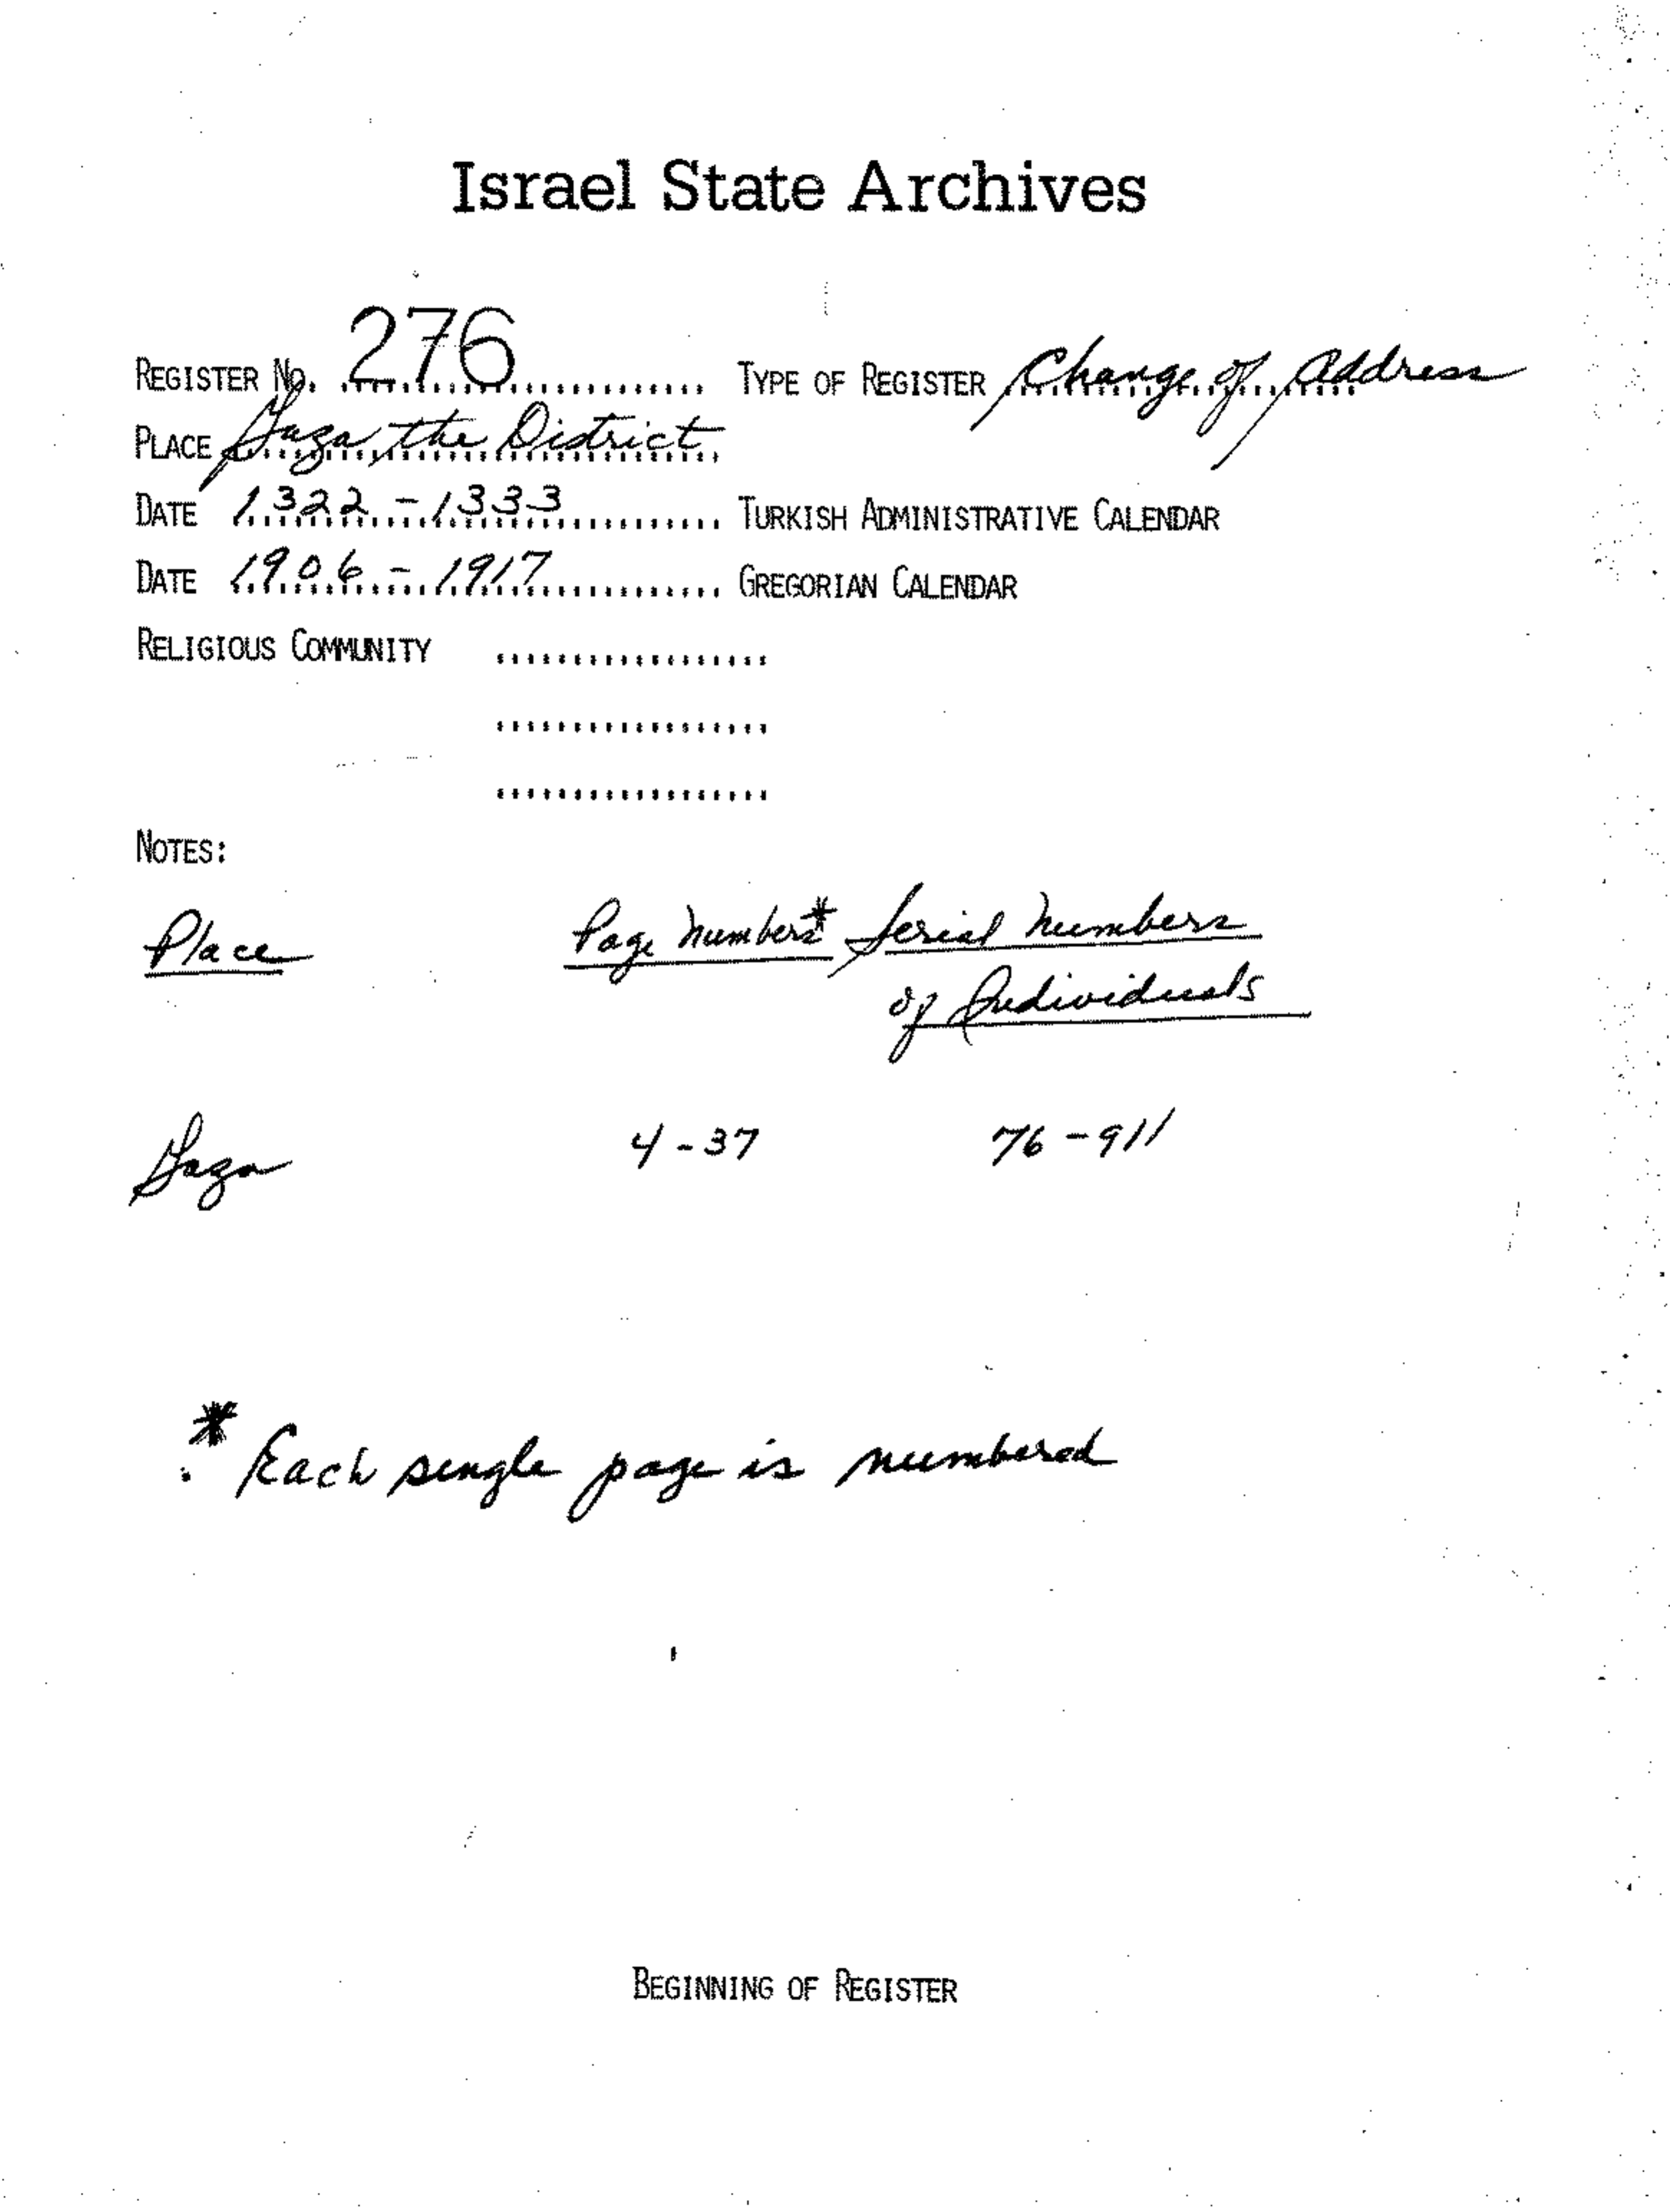 Israel State Archives
REGISTER No. 276 TYPE OF REGISTER Change of Address
PLACE Gaza, the District
DATE 1322 - 1333 TURKISH ADMINISTRATIVE CALENDAR
DATE 1906 - 1917 GREGORIAN CALENDAR
RELIGIOUS COMMUNITY
NOTES:
Place Page Numbers* Serial Numbers
of Individuals
Gaza 4-37 76-911
* Each single page is numbered
BEGINNING OF REGISTER